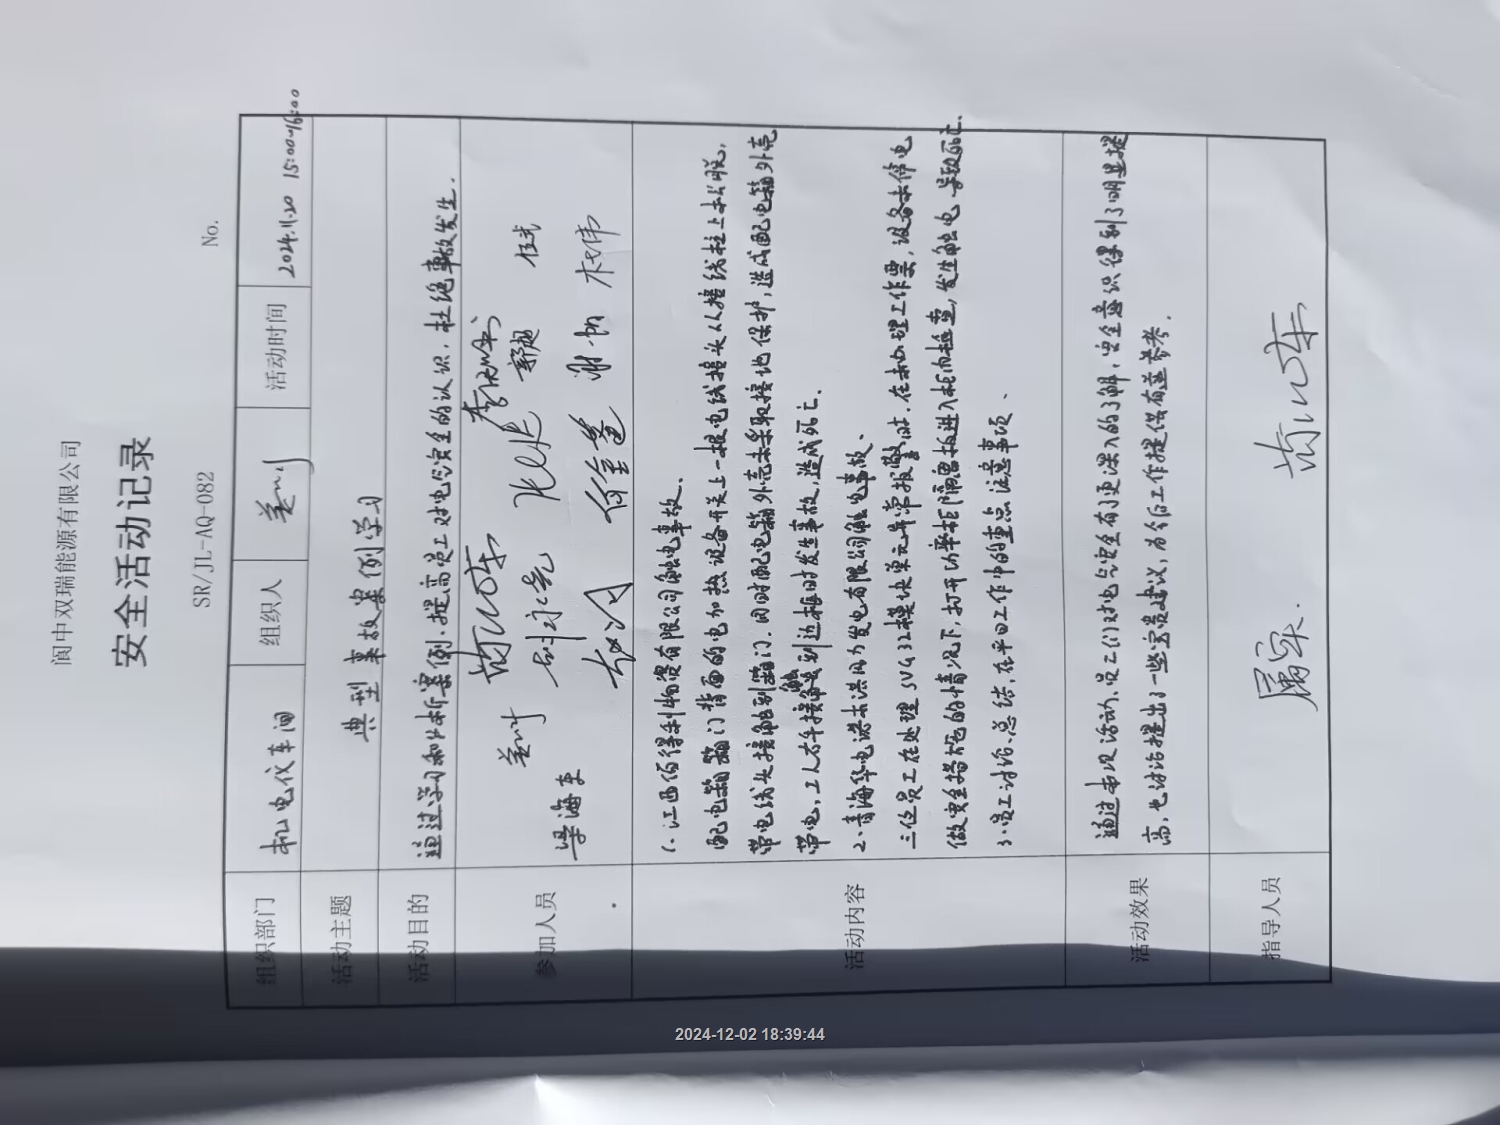 阆中双瑞能源有限公司
安全活动记录
SR/JL-AQ-082 No.
组织部门 机电仪车间 组织人 活动时间 2024.11.20 15:00-16:00
活动主题 典型事故案例学习
活动目的 通过学习和分析案例,提高员工对电气安全的认识,杜绝事故发生.
参加人员
郭超 任武
刘永亮
梁海军 谢帆 杜伟
活动内容
1、江西佰得利物资有限公司触电事故.
配电箱箱门背面的电加热设备开关上一根电线接头从接线柱上松脱,
带电线头接触到箱门.同时配电箱外壳未采取接地保护,造成配电箱外壳
带电,工人右手接触到边框时发生事故,造成死亡.
2、青海华电诺木洪风力发电有限公司触电事故、
三位员工在处理SVG 32模块单元异常报警时.在未办理工作票,设备未停电
做安全措施的情况下,打开功率柜隔离挡板进入柜内检查,发生触电,导致死亡.
3、员工讨论、总结,在平日工作中的重点注意事项、
活动效果 通过本次活动,员工们对电气安全有了更深入的了解,安全意识得到了明显提
高,也讨论提出了一些宝贵建议,为今后工作提供有益参考.
指导人员
2024-12-02 18:39:44